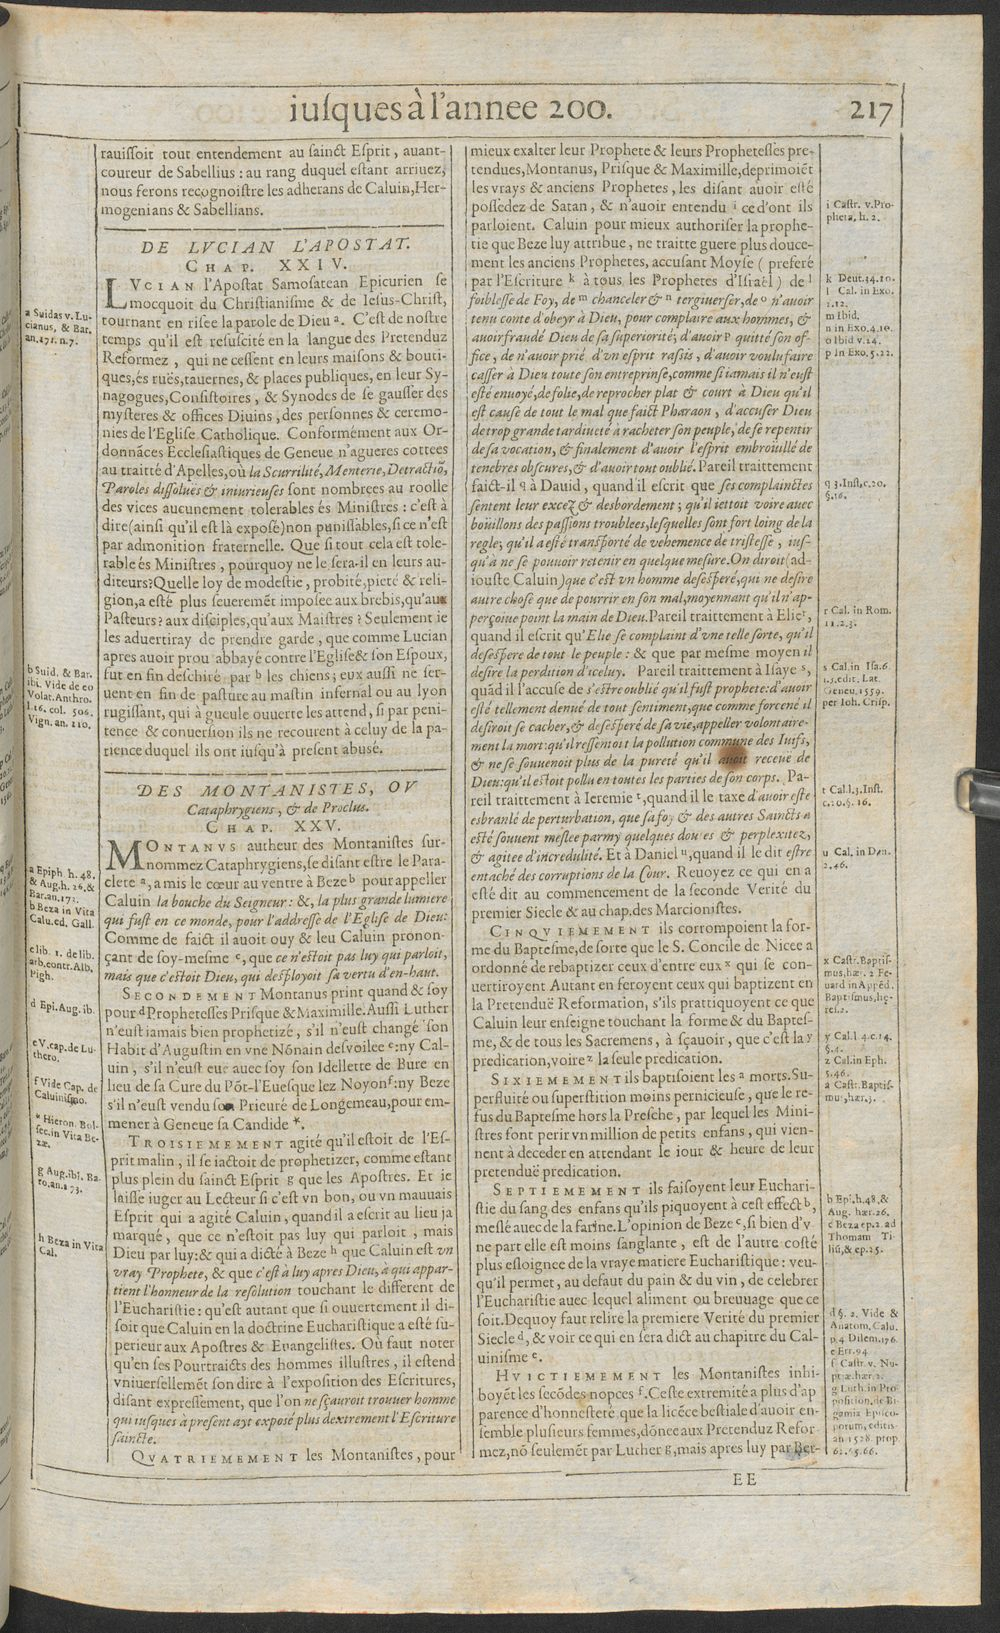 iusques à l'annee 200.
217
rauissoit tout entendement au sainct Esprit, auant-
coureur de Sabellius : au rang duquel estant arriuez,
nous ferons recognoistre les adherans de Caluin, Her-
mogenians & Sabellians.
DE LVCIAN L'APOSTAT.
CHAP. XXIV.
LVCIAN l'Apostat Samosatean Epicurien se
mocquoit du Christianisme & de Iesus-Christ,
tournant en risee la parole de Dieu a. C'est de nostre
temps qu'il est resuscité en la langue des Pretenduz
Reformez, qui ne cessent en leurs maisons & bouti-
ques, és ruës, tauernes, & places publiques, en leur Sy-
nagogues, Consistoires, & Synodes de se gausser des
mysteres & offices Diuins, des personnes & ceremo-
nies de l'Eglise Catholique. Conformément aux Or-
donnãces Ecclesiastiques de Geneue n'agueres cottees
au traitté d'Apelles, où la Scurrilité, Menterie, Detractiõ,
Paroles dissoluës & iniurieuses sont nombrees au roolle
des vices aucunement tolerables és Ministres : c'est à
dire (ainsi qu'il est là exposé) non punissables, si ce n'est
par admonition fraternelle. Que si tout cela est tole-
rable és Ministres, pourquoy ne le sera-il en leurs au-
diteurs? Quelle loy de modestie, probité, pieté & reli-
gion, a esté plus seueremēt imposee aux brebis, qu'aux
Pasteurs? aux disciples, qu'aux Maistres ? Seulement ie
les aduertiray de prendre garde, que comme Lucian
apres auoir prou abbayé contre l'Eglise & son Espoux,
fut en fin deschiré par b les chiens ; eux aussi ne ser-
uent en fin de pasture au mastin infernal ou au lyon
rugissant, qui à gueule ouuerte les attend, si par peni-
tence & conuersion ils ne recourent à celuy de la pa-
tience duquel ils ont iusqu'à present abusé.
DES MONTANISTES, OV
Cataphrygiens, & de Proclus.
CHAP. XXV.
MONTANVS autheur des Montanistes sur-
nommez Cataphrygiens, se disant estre le Para-
clete a, a mis le cœur au ventre à Beze b pour appeller
Caluin la bouche du Seigneur : &, la plus grande lumiere
qui fust en ce monde, pour l'addresse de l'Eglise de Dieu:
Comme de faict il auoit ouy & leu Caluin pronon-
çant de soy-mesme c, que ce n'estoit pas luy qui parloit,
mais que c'estoit Dieu, qui desployoit sa vertu d'en-haut.
SECONDEMENT Montanus print quand & soy
pour d Prophetesses Prisque & Maximille. Aussi Luther
n'eust iamais bien prophetizé, s'il n'eust changé son
Habit d'Augustin en vne Nõnain desvoilee e: ny Cal-
uin, s'il n'eust eue auec soy son Idellette de Bure en
lieu de sa Cure du Põt-l'Euesque lez Noyon f: ny Beze
s'il n'eust vendu son Prieuré de Longemeau, pour em-
mener à Geneue sa Candide *.
TROISIEMEMENT agité qu'il estoit de l'Es-
prit malin, il se iactoit de prophetizer, comme estant
plus plein du sainct Esprit g que les Apostres. Et ie
laisse iuger au Lecteur si c'est vn bon, ou vn mauuais
Esprit qui a agité Caluin, quand il a escrit au lieu ja
marqué, que ce n'estoit pas luy qui parloit, mais
Dieu par luy: & qui a dicté à Beze h que Caluin est vn
vray Prophete, & que c'est à luy apres Dieu, à qui appar-
tient l'honneur de la resolution touchant le different de
l'Eucharistie : qu'est autant que si ouuertement il di-
soit que Caluin en la doctrine Eucharistique a esté su-
perieur aux Apostres & Euangelistes. Où faut noter
qu'en ses Pourtraicts des hommes illustres, il estend
vniuersellemēt son dire à l'exposition des Escritures,
disant expressement, que l'on ne sçauroit trouuer homme
qui iusques à present ayt exposé plus dextrement l'Escriture
saincte.
QVATRIEMEMENT les Montanistes, pour
a Suidas v. Lu-
cianus, & Bar.
an. 171. n. 7.
b Suid. & Bar.
ibi. Vide de eo
Volat. Anthro.
l. 16. col. 506.
Vign. an. 110.
a Epiph h. 48.
& Aug. h. 26. &
Bar. an. 172.
b Beza in Vita
Calu. ed. Gall.
c lib. 1. de lib.
arb. contr. Alb.
Pigh.
d Epi. Aug. ib.
e V. cap. de Lu-
thero.
f Vide Cap. de
Caluinismo.
* Hieron. Bol-
sec. in Vita Be-
zæ.
g Aug. ibi. Ba-
ro. an. 173.
h Beza in Vita
Cal.
mieux exalter leur Prophete & leurs Prophetesses pre-
tendues, Montanus, Prisque & Maximille, deprimoiēt
les vrays & anciens Prophetes, les disant auoir esté
possedez de Satan, & n'auoir entendu i ce d'ont ils
parloient. Caluin pour mieux authoriser la prophe-
tie que Beze luy attribue, ne traitte guere plus douce-
ment les anciens Prophetes, accusant Moyse ( preferé
par l'Escriture k à tous les Prophetes d'Israël ) de l
foiblesse de Foy, de m chanceler & n tergiuerser, de o n'auoir
tenu conte d'obeyr à Dieu, pour complaire aux hommes, &
auoir fraudé Dieu de sa superiorité; d'auoir p quitté son of-
fice, de n'auoir prié d'vn esprit rassis, d'auoir voulu faire
casser à Dieu toute son entreprinse, comme si iamais il n'eust
esté enuoyé, de folie, de reprocher plat & court à Dieu qu'il
est cause de tout le mal que faict Pharaon, d'accuser Dieu
de trop grande tardiueté à racheter son peuple, de se repentir
de sa vocation, & finalement d'auoir l'esprit embrouillé de
tenebres obscures, & d'auoir tout oublié. Pareil traittement
faict-il q à Dauid, quand il escrit que ses complainctes
sentent leur excez & desbordement ; qu'il iettoit voire auec
boüillons des passions troublees, lesquelles sont fort loing de la
regle; qu'il a esté transporté de vehemence de tristesse, ius-
qu'à ne se pouuoir retenir en quelque mesure. On diroit (ad-
iouste Caluin) que c'est vn homme desesperé, qui ne desire
autre chose que de pourrir en son mal, moyennant qu'il n'ap-
perçoiue point la main de Dieu. Pareil traittement à Elie r,
quand il escrit qu'Elie se complaint d'vne telle sorte, qu'il
desespere de tout le peuple : & que par mesme moyen il
desire la perdition d'iceluy. Pareil traittement à Isaye s,
quãd il l'accuse de s'estre oublié qu'il fust prophete: d'auoir
esté tellement denué de tout sentiment, que comme forcené il
desiroit se cacher, & desesperé de sa vie, appeller volontaire-
ment la mort: qu'il ressentoit la pollution commune des Iuifs,
& ne se souuenoit plus de la pureté qu'il auoit receuë de
Dieu: qu'il estoit pollu en toutes les parties de son corps. Pa-
reil traittement à Ieremie t, quand il le taxe d'auoir esté
esbranlé de perturbation, que sa foy & des autres Saincts a
esté souuent meslee parmy quelques doutes & perplexitez,
& agitee d'incredulité. Et à Daniel u, quand il le dit estre
entaché des corruptions de la Cour. Reuoyez ce qui en a
esté dit au commencement de la seconde Verité du
premier Siecle & au chap. des Marcionistes.
CINQVIEMEMENT ils corrompoient la for-
me du Baptesme, de sorte que le S. Concile de Nicee a
ordonné de rebaptizer ceux d'entre eux x qui se con-
uertiroyent Autant en feroyent ceux qui baptizent en
la Pretenduë Reformation, s'ils prattiquoyent ce que
Caluin leur enseigne touchant la forme & du Baptes-
me, & de tous les Sacremens, à sçauoir, que c'est la y
predication, voire z la seule predication.
SIXIEMEMENT ils baptisoient les a morts. Su-
perfluité ou superstition moins pernicieuse, que le re-
fus du Baptesme hors la Presche, par lequel les Mini-
stres font perir vn million de petits enfans, qui vien-
nent à deceder en attendant le iour & heure de leur
pretenduë predication.
SEPTIEMEMENT ils faisoyent leur Euchari-
stie du sang des enfans qu'ils piquoyent à cest effect b,
meslé auec de la farine. L'opinion de Beze c, si bien d'v-
ne part elle est moins sanglante, est de l'autre costé
plus esloignee de la vraye matiere Eucharistique : veu-
qu'il permet, au defaut du pain & du vin, de celebrer
l'Eucharistie auec lequel aliment ou breuuage que ce
soit. Dequoy faut relire la premiere Verité du premier
Siecle d, & voir ce qui en sera dict au chapitre du Cal-
uinisme e.
HVICTIEMEMENT les Montanistes inhi-
boyēt les secõdes nopces f. Ceste extremité a plus d'ap-
parence d'honnesteté que la licēce bestiale d'auoir en-
semble plusieurs femmes, dõnee aux Pretenduz Refor-
mez, nõ seulemēt par Luther g, mais apres luy par Ber-
i Castr. v. Pro-
pheta, h. 2.
k Deut. 34. 10.
l Cal. in Exo.
2. 12.
m Ibid.
n in Exo. 4. 10.
o Ibid v. 14.
p In Exo. 5. 22.
q 3. Inst. c. 20.
§. 16.
r Cal. in Rom.
11. 2. 3.
s Cal. in Isa. 6.
v. 5. edit. Lat.
Geneu. 1559.
per Ioh. Crisp.
t Cal. l. 3. Inst.
c. 20. §. 16.
u Cal. in Dan.
2. 46.
x Castr. Baptis-
mus, hær. 2 Fe-
uard in Appēd.
Baptismus, hę-
res. 2.
y Cal. l. 4. c. 14.
§. 4.
z Cal. in Eph.
5. 26.
a Castr. Baptis-
mus, hær. 3.
b Epi. h. 48. &
Aug. hær. 26.
c Beza ep. 2. ad
Thomam Ti-
lis, & ep. 25.
d §. 2. Vide &
Anatom. Calu.
p. 4 Dilem. 176.
e Err. 94
f Castr. v. Nu-
ptiæ. hær. 2.
g Luth. in Pro-
position. de Bi-
gamia Episco-
porum, editis
an 1528. prop
62. 65. 66.
EE